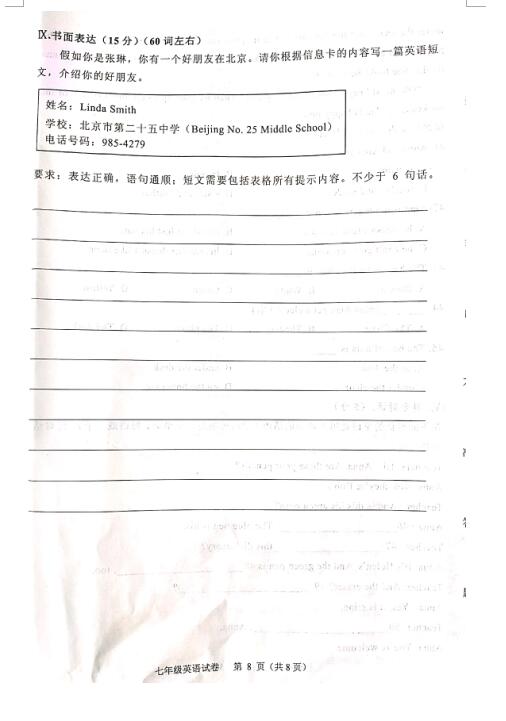 Ⅸ.书面表达（15 分）（60 词左右）
假如你是张琳，你有一个好朋友在北京。请你根据信息卡的内容写一篇英语短
文，介绍你的好朋友。
姓名：Linda Smith
学校：北京市第二十五中学（Beijing No. 25 Middle School）
电话号码：985-4279
要求：表达正确，语句通顺；短文需要包括表格所有提示内容。不少于 6 句话。
七年级英语试卷 第 8 页（共 8 页）